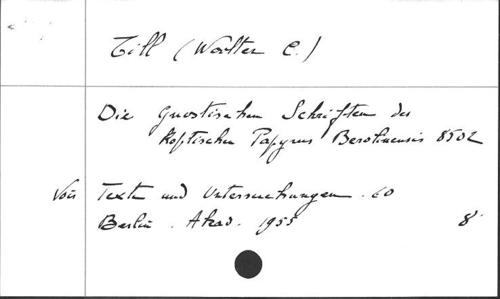 Till (Walter C.)
Die Gnostischen Schriften des
koptischen Papyrus Berolinensis 8502
Voir Texte und Untersuchungen . 60
Berlin . Akad. 1955 8°